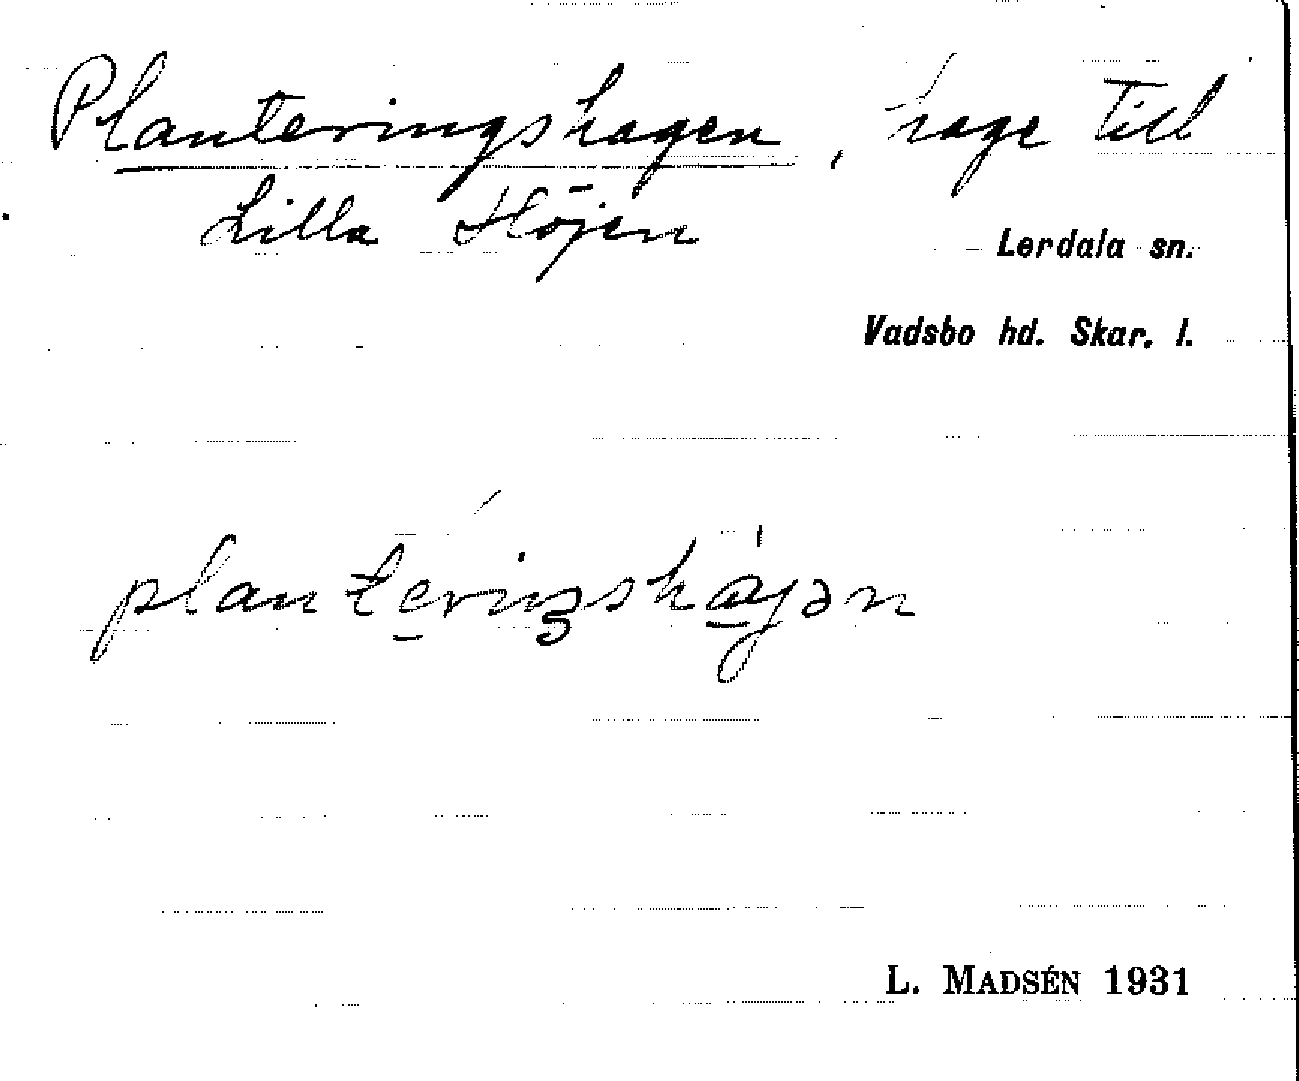 Planteringshagen, hage till
Lilla Höjen
Lerdala sn.
Vadsbo hd. Skar. l.
planteriŋshaγən
L. MADSÉN 1931